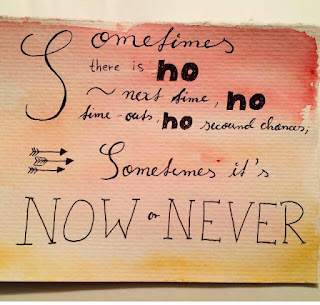 Sometimes
there is no
~ next time, no
time-outs, no secound chances;
Sometimes it's
NOW or NEVER